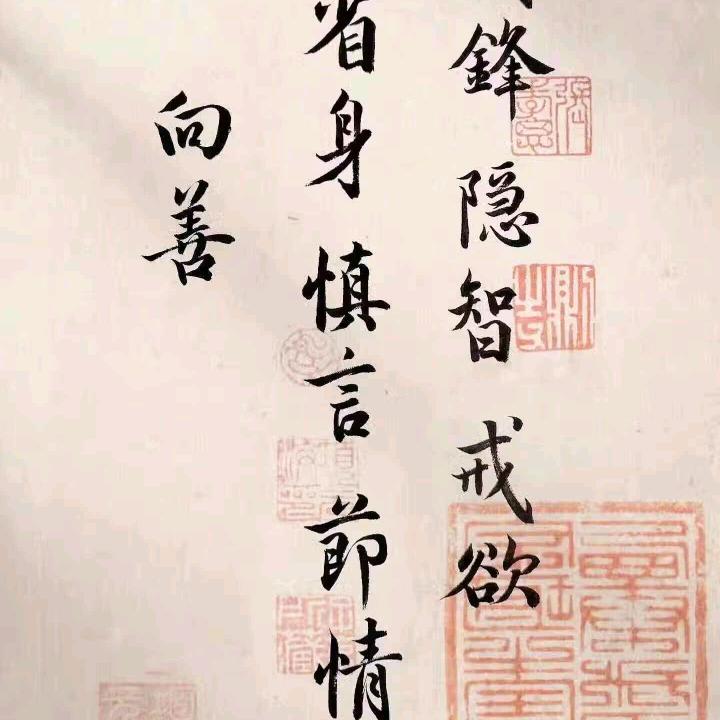 鋒 隐智 戒欲
省身 慎言 節情
向善